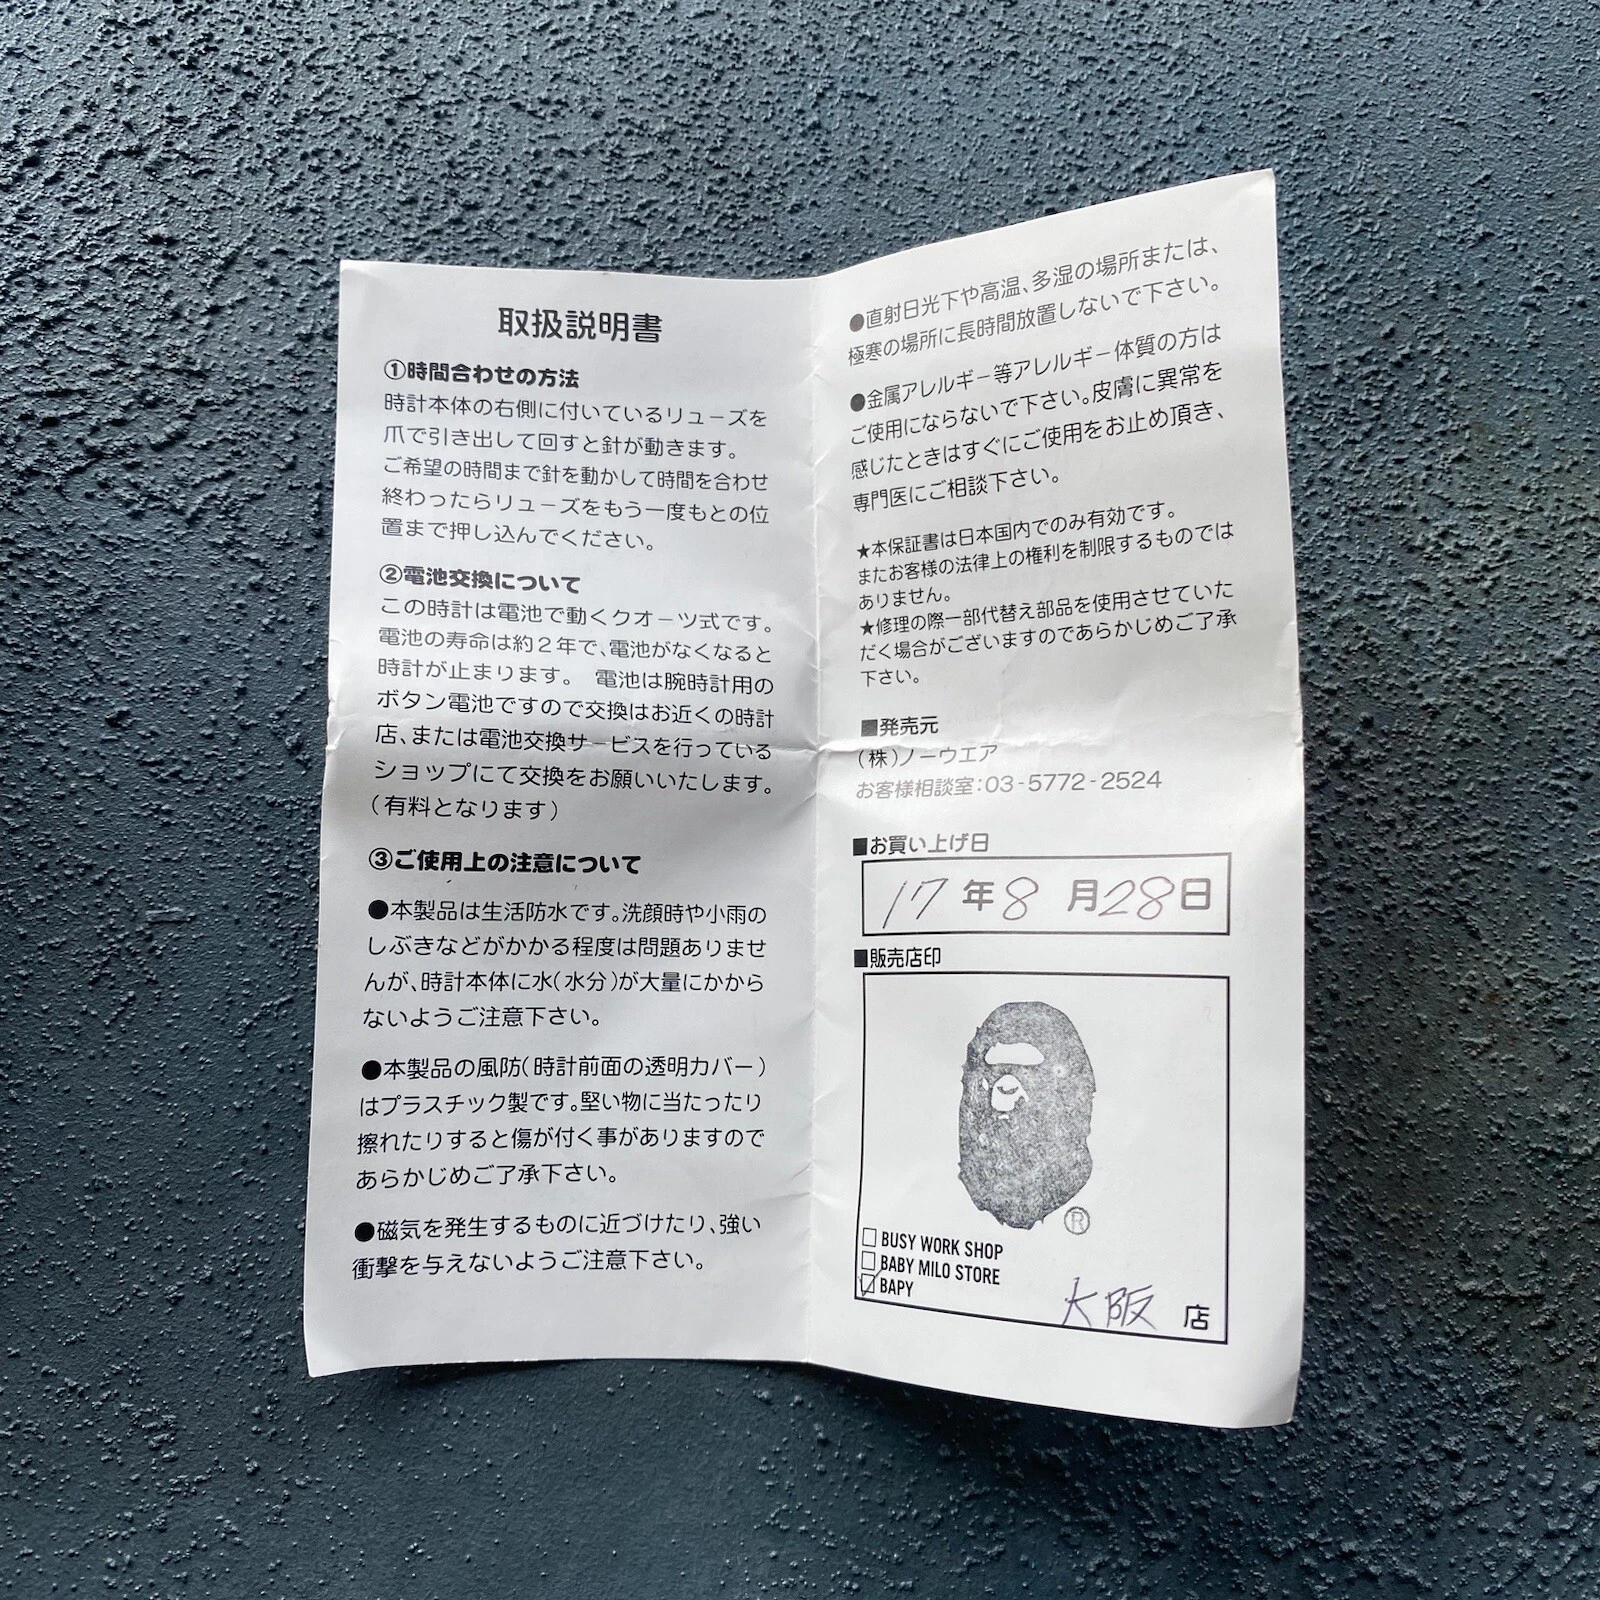 取扱説明書
①時間合わせの方法
時計本体の右側に付いているリューズを
爪で引き出して回すと針が動きます。
ご希望の時間まで針を動かして時間を合わせ
終わったらリューズをもう一度もとの位
置まで押し込んでください。
②電池交換について
この時計は電池で動くクオーツ式です。
電池の寿命は約2年で、電池がなくなると
時計が止まります。 電池は腕時計用の
ボタン電池ですので交換はお近くの時計
店、または電池交換サービスを行っている
ショップにて交換をお願いいたします。
(有料となります)
③ご使用上の注意について
●本製品は生活防水です。洗顔時や小雨の
しぶきなどがかかる程度は問題ありませ
んが、時計本体に水(水分)が大量にかから
ないようご注意下さい。
●本製品の風防(時計前面の透明カバー)
はプラスチック製です。堅い物に当たったり
擦れたりすると傷が付く事がありますので
あらかじめご了承下さい。
●磁気を発生するものに近づけたり、強い
衝撃を与えないようご注意下さい。
●直射日光下や高温、多湿の場所または、
極寒の場所に長時間放置しないで下さい。
●金属アレルギー等アレルギー体質の方は
ご使用にならないで下さい。皮膚に異常を
感じたときはすぐにご使用をお止め頂き、
専門医にご相談下さい。
★本保証書は日本国内でのみ有効です。
またお客様の法律上の権利を制限するものでは
ありません。
★修理の際一部代替え部品を使用させていた
だく場合がございますのであらかじめご了承
下さい。
■発売元
(株)ノーウエア
お客様相談室:03-5772-2524
■お買い上げ日
17年8月28日
■販売店印
®
□ BUSY WORK SHOP
□ BABY MILO STORE
☑ BAPY
大阪 店